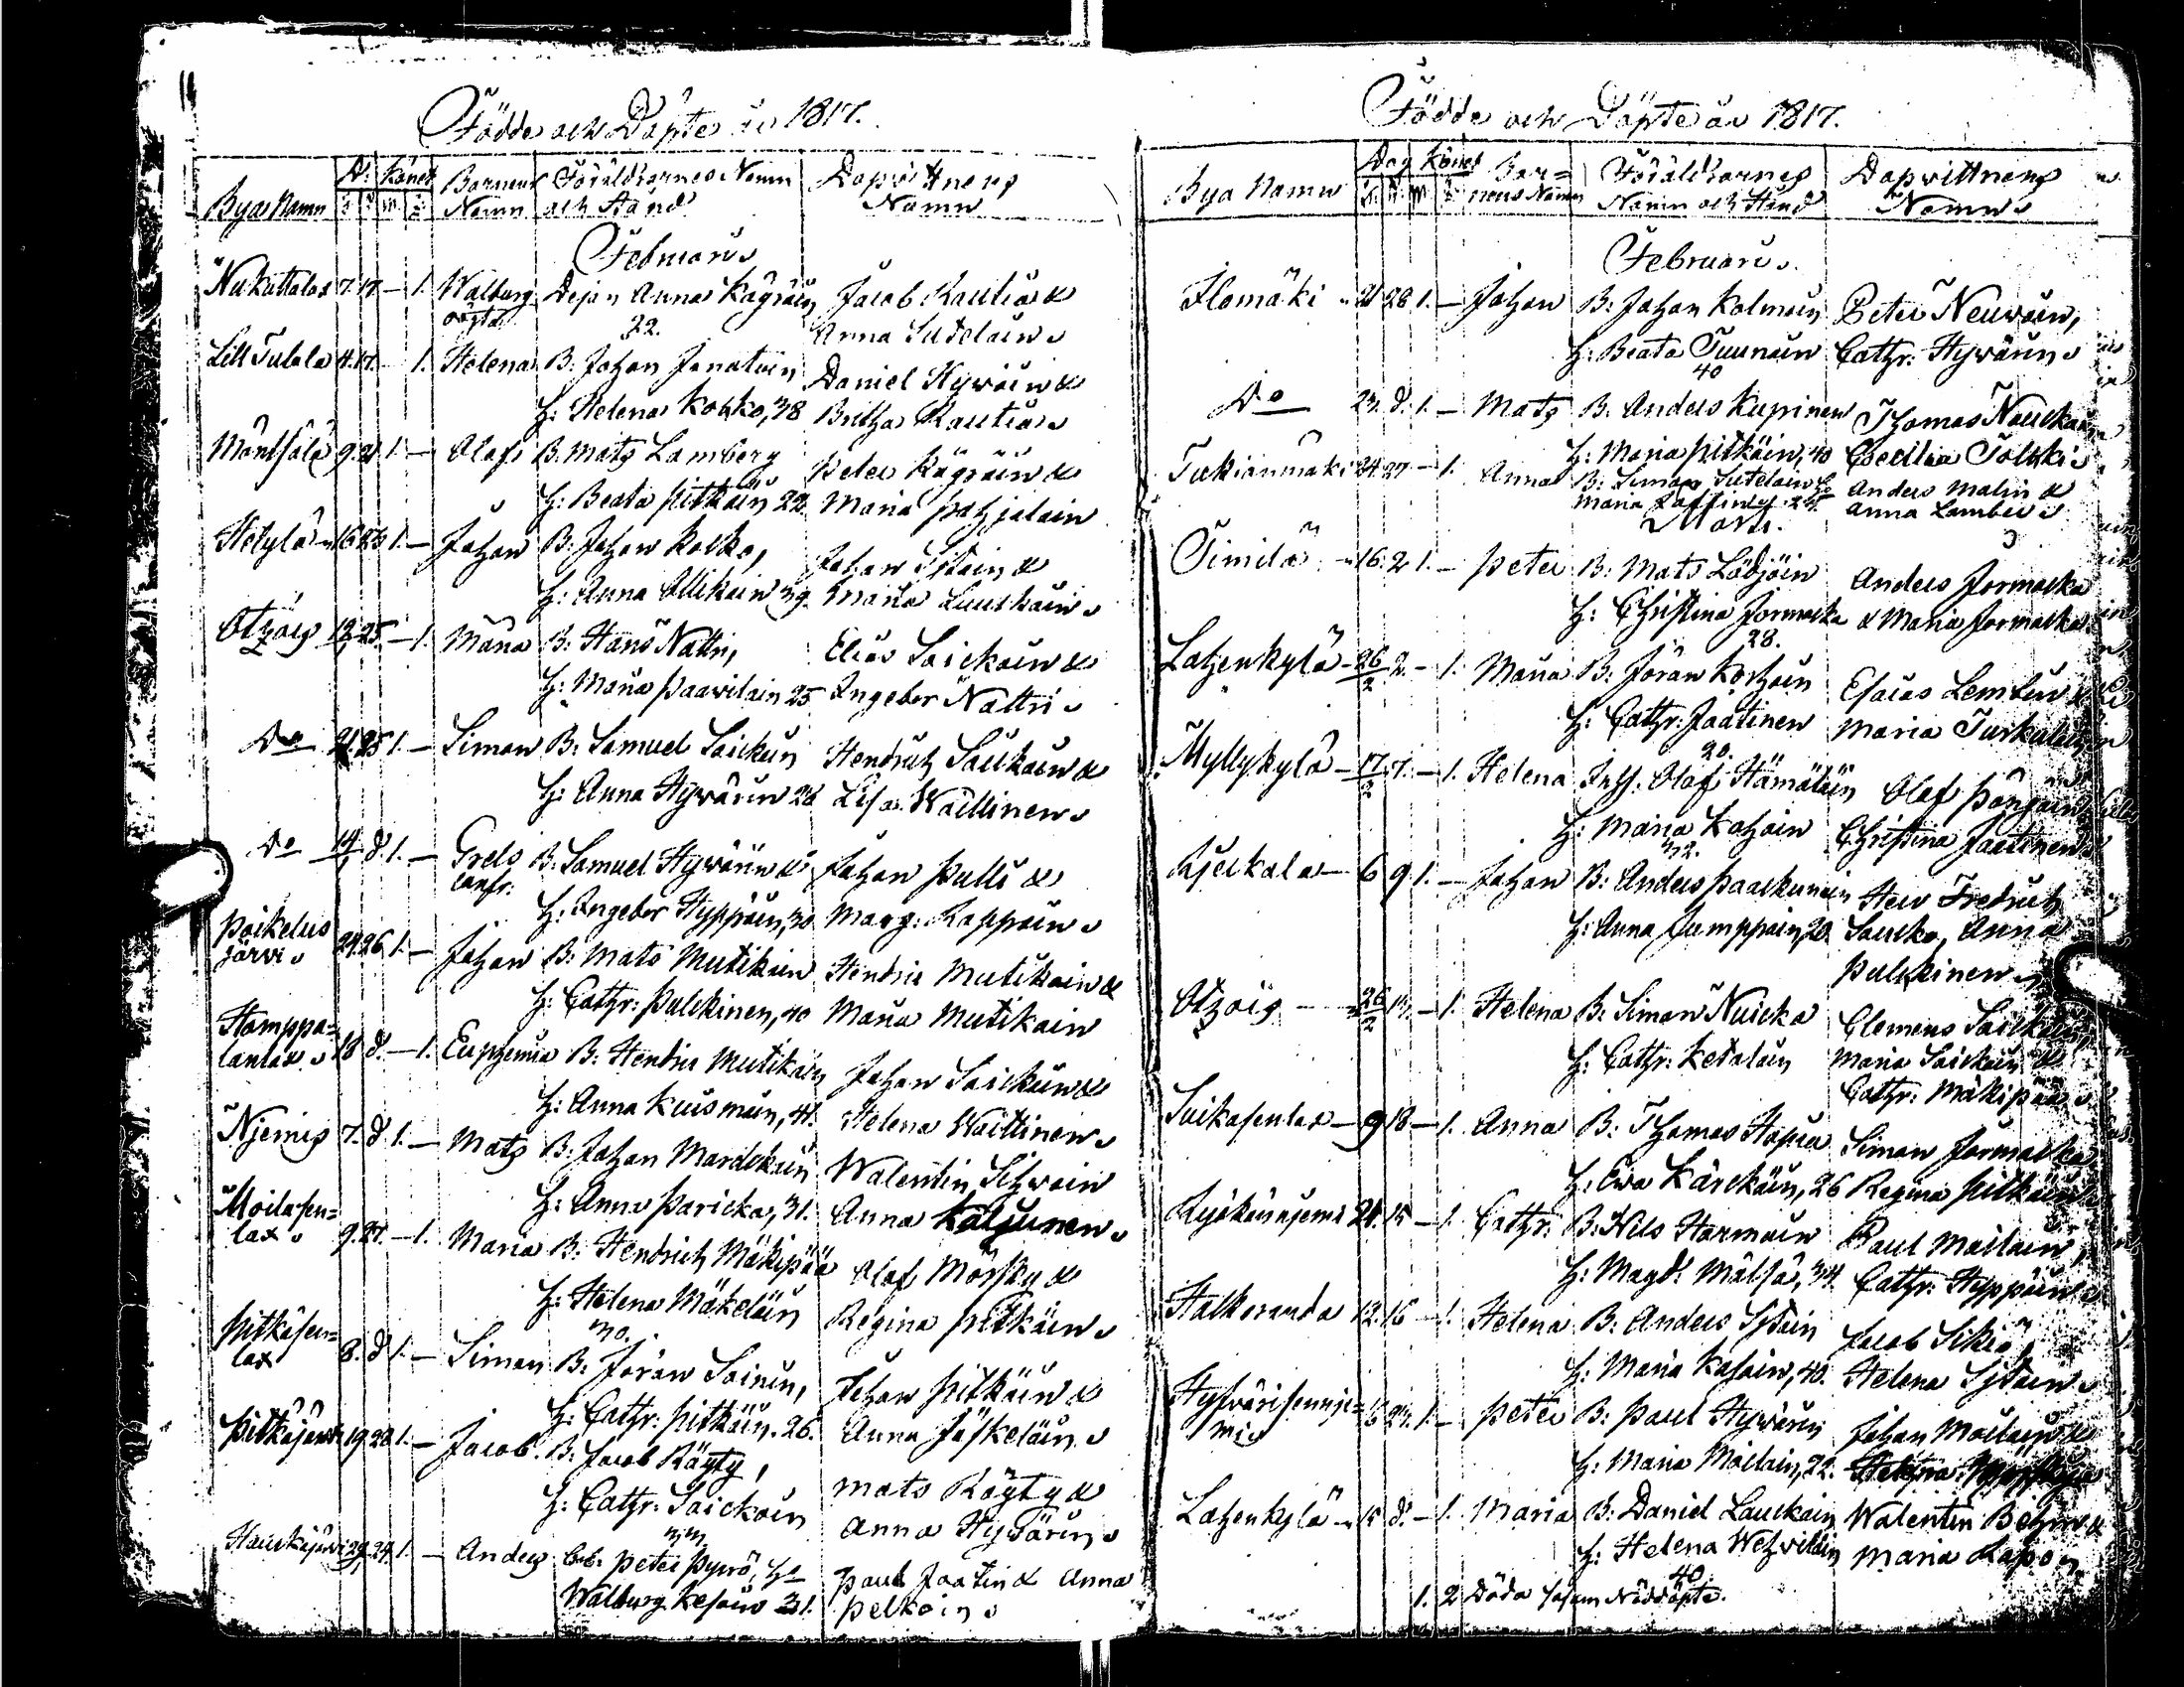 Födde och Döpte år 1817.
Byar Namn D. Könet Barnens Namn Föräldrarnes Namn och Stånd Dopvittnens Namn
Februari
Nukuttalax 7. 17. — 1. Walborg Dejan Anna Kägräin Jacob Rautia &
oägta 22. Anna Sutelain
Lill Tulola 4. 17. — 1. Helena B: Johan Janatuin Daniel Hyväin &
H: Helena Kokko, 38 Britha Rautia
Mäntsälä 9. 21 1. — Olof B. Mats Lamberg Peter Kägräin &
H: Beata Pitkäin 22 Maria Pohjalain
Hetylä 16 23 1. — Johan B. Johan Kokko, Johan Sjöain &
H: Anna Ollikain 39. Maria Luukain
Otsois 25. — 1. Maria B: Hans Nattri, Elias Saickain &
H: Maria Paavilain 25 Ingebor Nattri
Do 21 25 1. — Simon B: Samuel Saickain Hendrich Saickain &
H: Anna Hyvärin 28 Lisa Waittinen
Do d. 1. — Grels B: Samuel Hyvärin & Johan Pulli &
H: Ingebor Hyppöin, 30 Marg: Rappain
Poikelus
järvi 24 26 1. — Johan B: Mats Mutikain Hendric Mutikain &
H: Cathr: Pulckinen, 40 Maria Mutikain
Hamppa=
lanlax 18 d. — 1. Euphemia B: Hendric Mutikain Johan Saickain &
H: Anna Kuismain, 41. Helena Waittinen
Njemis 7. d 1. — Mats B: Johan Mardikain Walentin Sihvoin
H: Anna Paricka, 31. Anna Kaljunen
Moilasen=
lax 9. 27. — 1. Maria B: Hendrich Mäkipää Olof Mörsky &
H: Helena Mäkeläin Regina Pitkäin
30.
Pitkäsen=
lax 8. d 1. — Simon B: Jöran Soinin, Johan Pitkäin &
H: Cathr: Pitkäin. 26. Anna Jäskeläin
Pitkäjärvi 19 28 1. — Jacob. B: Jacob Räyty, Mats Räyty &
H: Cathr: Saickain Anna Hyvärin
33
Hauckajärvi 29. 1. — Anders Peter Pyyrö, H: Paul Jaatin & Anna
Walborg Kesäin 31. Pelkoin
Födde och Döpte år 1817.
Bya Namn Dag Könet Bar=nens Namn Föräldrarnes Namn och Stånd Dopvittnens Namn
Februari
Ilomäki 21 28 1. — Johan B: Johan Kolmoin Peter Neuvoin,
H: Beata Tuunain Cathr: Hyvärin
40
Do 23. d. 1. — Mats B. Anders Kupinen Thomas Nouckain
H: Maria Pitkäin, 40 Cecilia Tolkki
Tuckianmäki 24. 27. — 1. Anna B: Simon Sutelain H: Anders Malin &
Maria 24. Anna Lamber
Mars.
Similä 16. 2 1. — Peter B: Mats Lödjöin Anders Jormacka
H: Christina Jormacka & Maria Jormacka
28.
Lahenkylä 26/2 2. — 1. Maria B: Jöran Korhoin Esaias Lembin
H: Cathr: Jaatinen Maria Turkulain
20.
Myllykylä 17/2 7. — 1. Helena Inh: Olof Hämäläin Olof
H: Maria Kohain Christina Jaatinen
32.
Kjeckala 6 9 1. — Johan B: Anders Paackunain Herr Fredrich
H: Anna Jumppain, 20 Saucko, Anna
Pulckinen
Otsois 26/2 — 1. Helena B: Simon Nuicka Clemens Saickain,
H: Cathr: Ketolain Maria Saickain &
Cathr: Mäkipää
Suikasenlax 9 18 — 1. Anna B: Thomas Hapia Simon Jormacka
H: Ewa Kärckäin, 26 Regina Pitkäin
24. 15 — 1. Cathr: B: Nils Harmain Paul Moilain,
H: Magd: Mälsä, 34. Cathr: Hyppöin
Halkoranda 12. 16 — 1. Helena B: Anders Sjöain Jacob Sikiö,
H: Maria Kasain, 40. Helena Sjöain
Hyfvärisennje=
mi 23. 1. — Peter B: Paul Hyvärin Johan Moilain &
H: Maria Moilain, 22.
Lahenkylä 15 d. — 1. Maria B: Daniel Lauckain Walentin Behm &
H: Helena Wehviläin Maria
40.
1. 2 Döda såsom Nöddöpte.